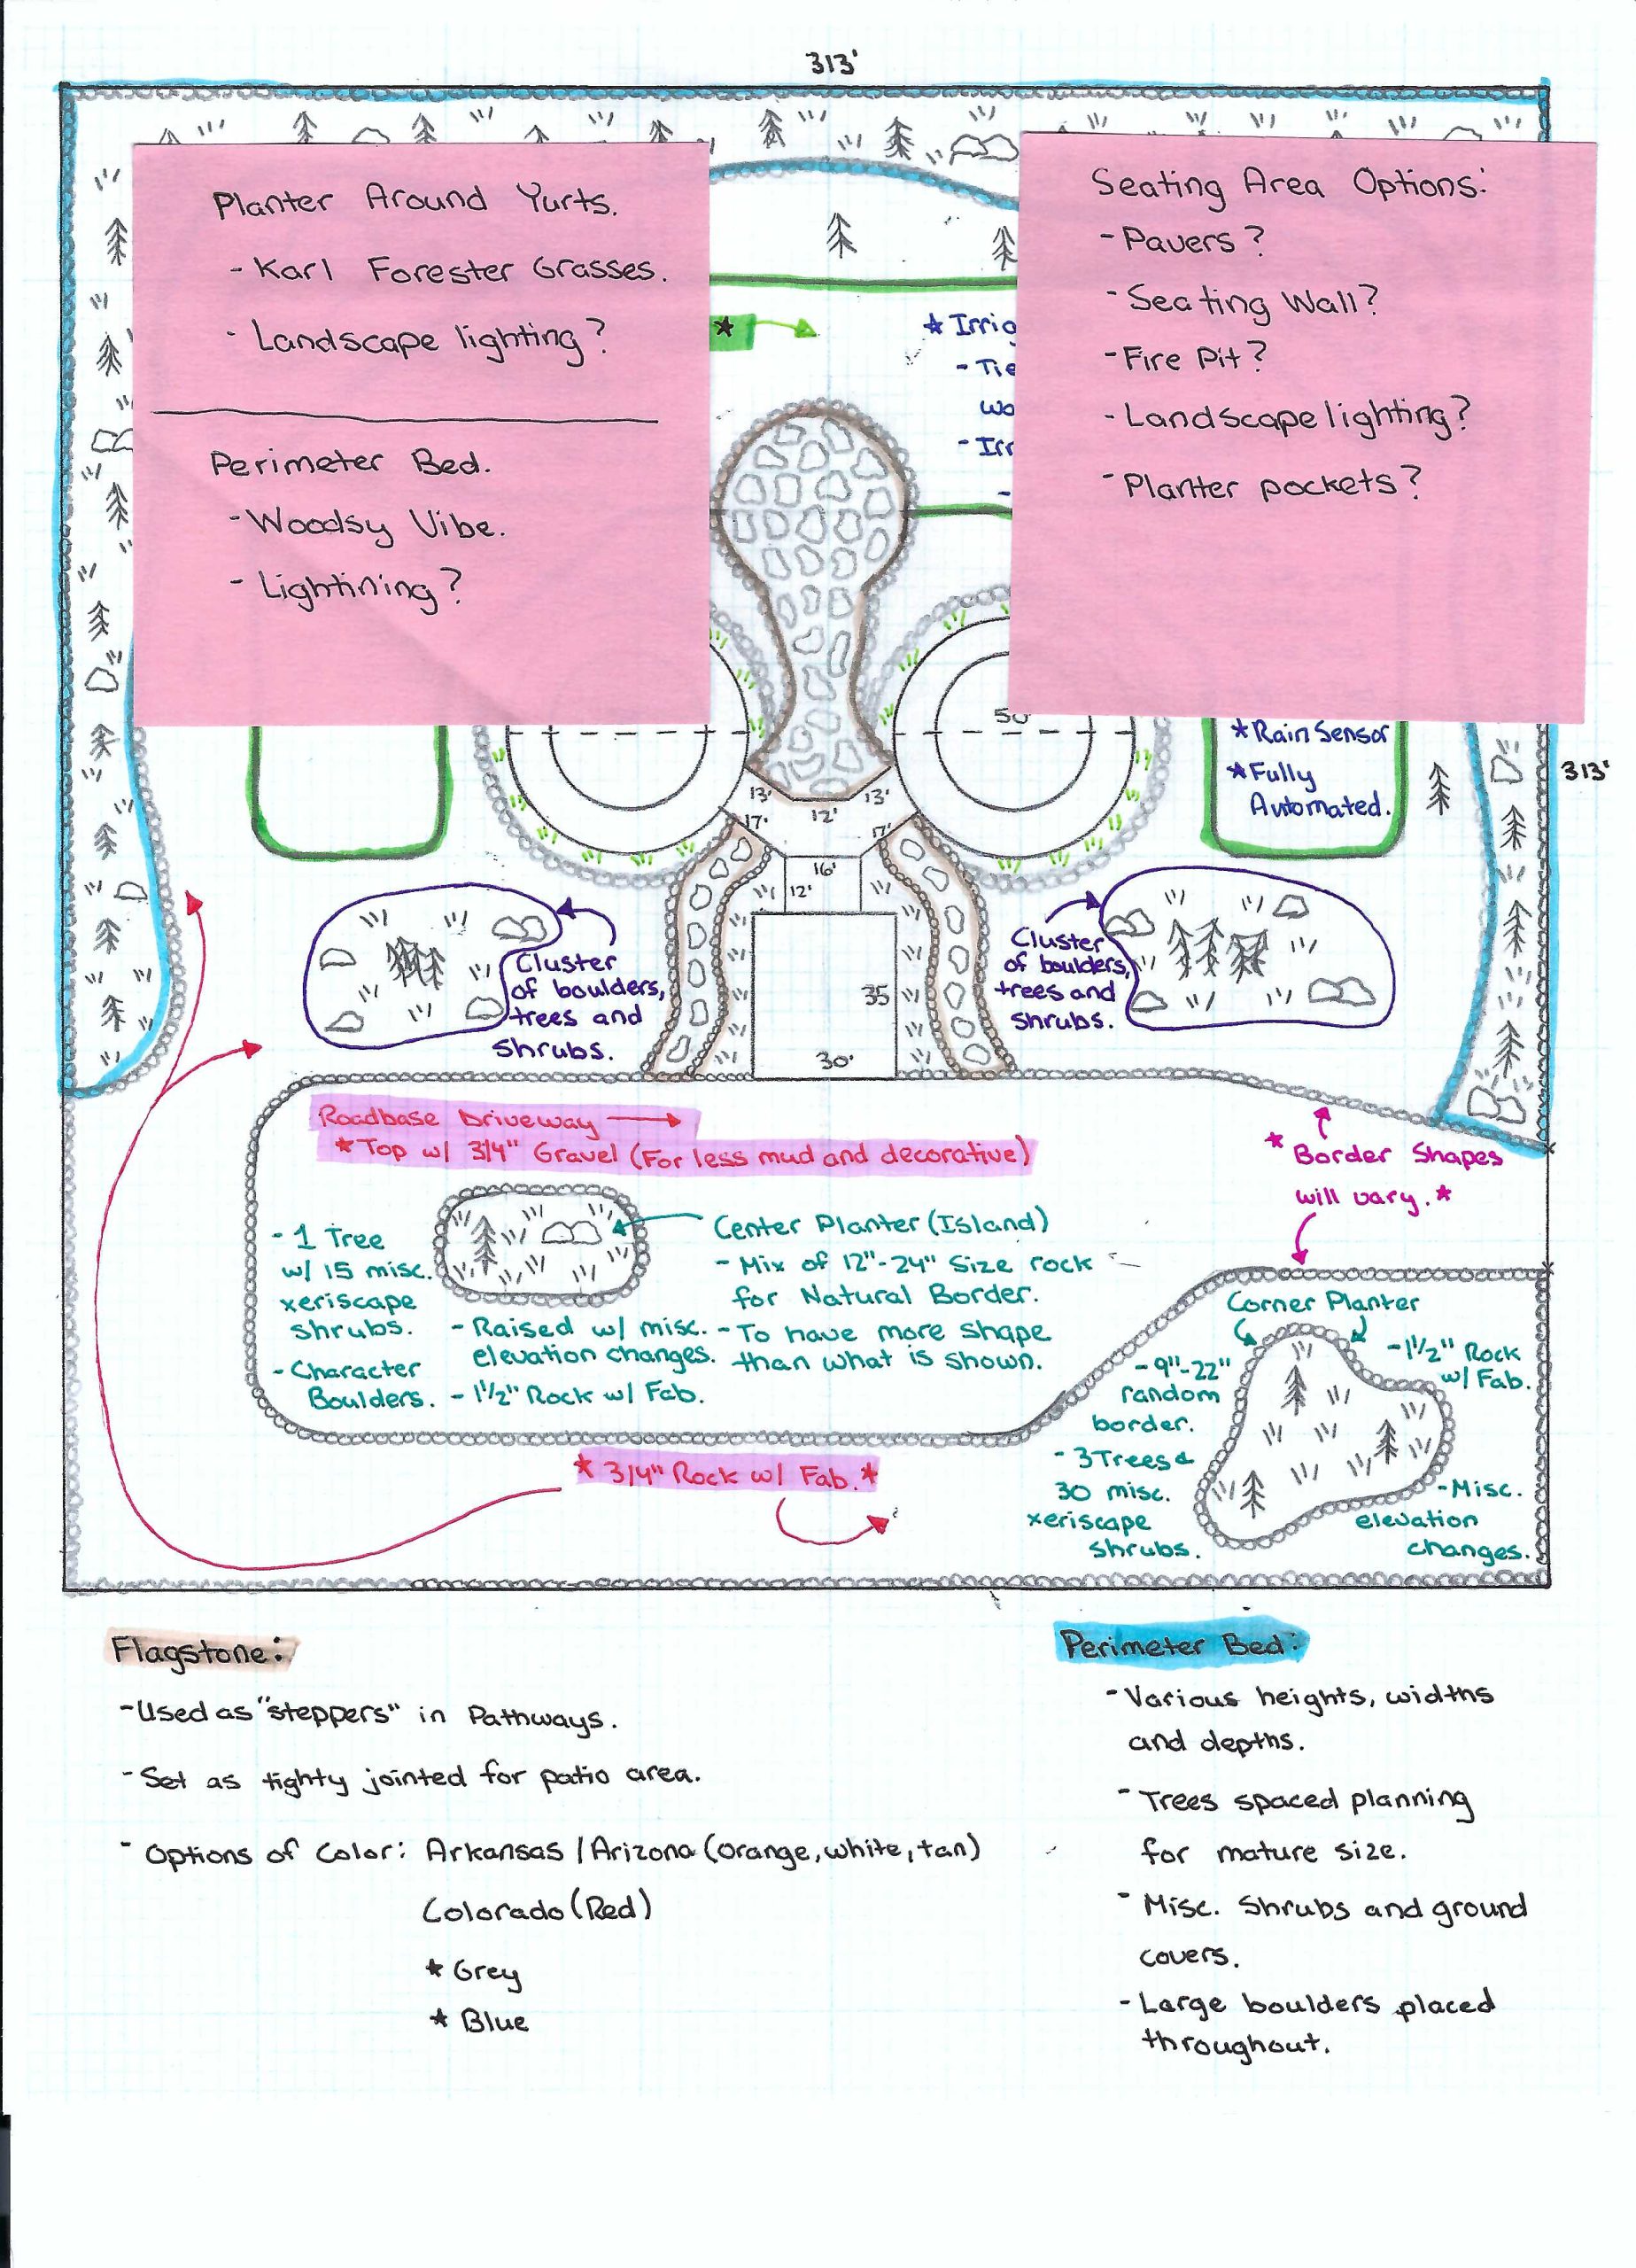 313'
Planter Around Yurts.
- Karl Forester Grasses.
- Landscape lighting?
Perimeter Bed.
- Woodsy Vibe.
- Lightining?
Seating Area Options:
- Pavers?
- Seating Wall?
- Fire Pit?
- Landscape lighting?
- Planter pockets?
*
* Irrig
- Tie
wa
- Irr
-
50'
* Rain Sensor
* Fully
Automated.
313'
13'
13'
12'
17'
17'
16'
12'
35
30'
Cluster
of boulders,
trees and
shrubs.
Cluster
of boulders,
trees and
shrubs.
Roadbase Driveway
* Top w/ 3/4" Gravel (For less mud and decorative)
* Border Shapes
will vary. *
- 1 Tree
w/ 15 misc.
xeriscape
shrubs.
- Character
Boulders.
Center Planter (Island)
- Mix of 12"-24" Size rock
for Natural Border.
- To have more shape
than what is shown.
- Raised w/ misc.
elevation changes.
- 1 1/2" Rock w/ Fab.
Corner Planter
- 9"-22"
random
border.
- 3 Trees &
30 misc.
xeriscape
shrubs.
- 1 1/2" Rock
w/ Fab.
- Misc.
elevation
changes.
* 3/4" Rock w/ Fab. *
Flagstone:
- Used as "steppers" in Pathways.
- Set as tighty jointed for patio area.
- Options of Color: Arkansas / Arizona (orange, white, tan)
Colorado (Red)
* Grey
* Blue
Perimeter Bed:
- Various heights, widths
and depths.
- Trees spaced planning
for mature size.
- Misc. Shrubs and ground
covers.
- Large boulders placed
throughout.